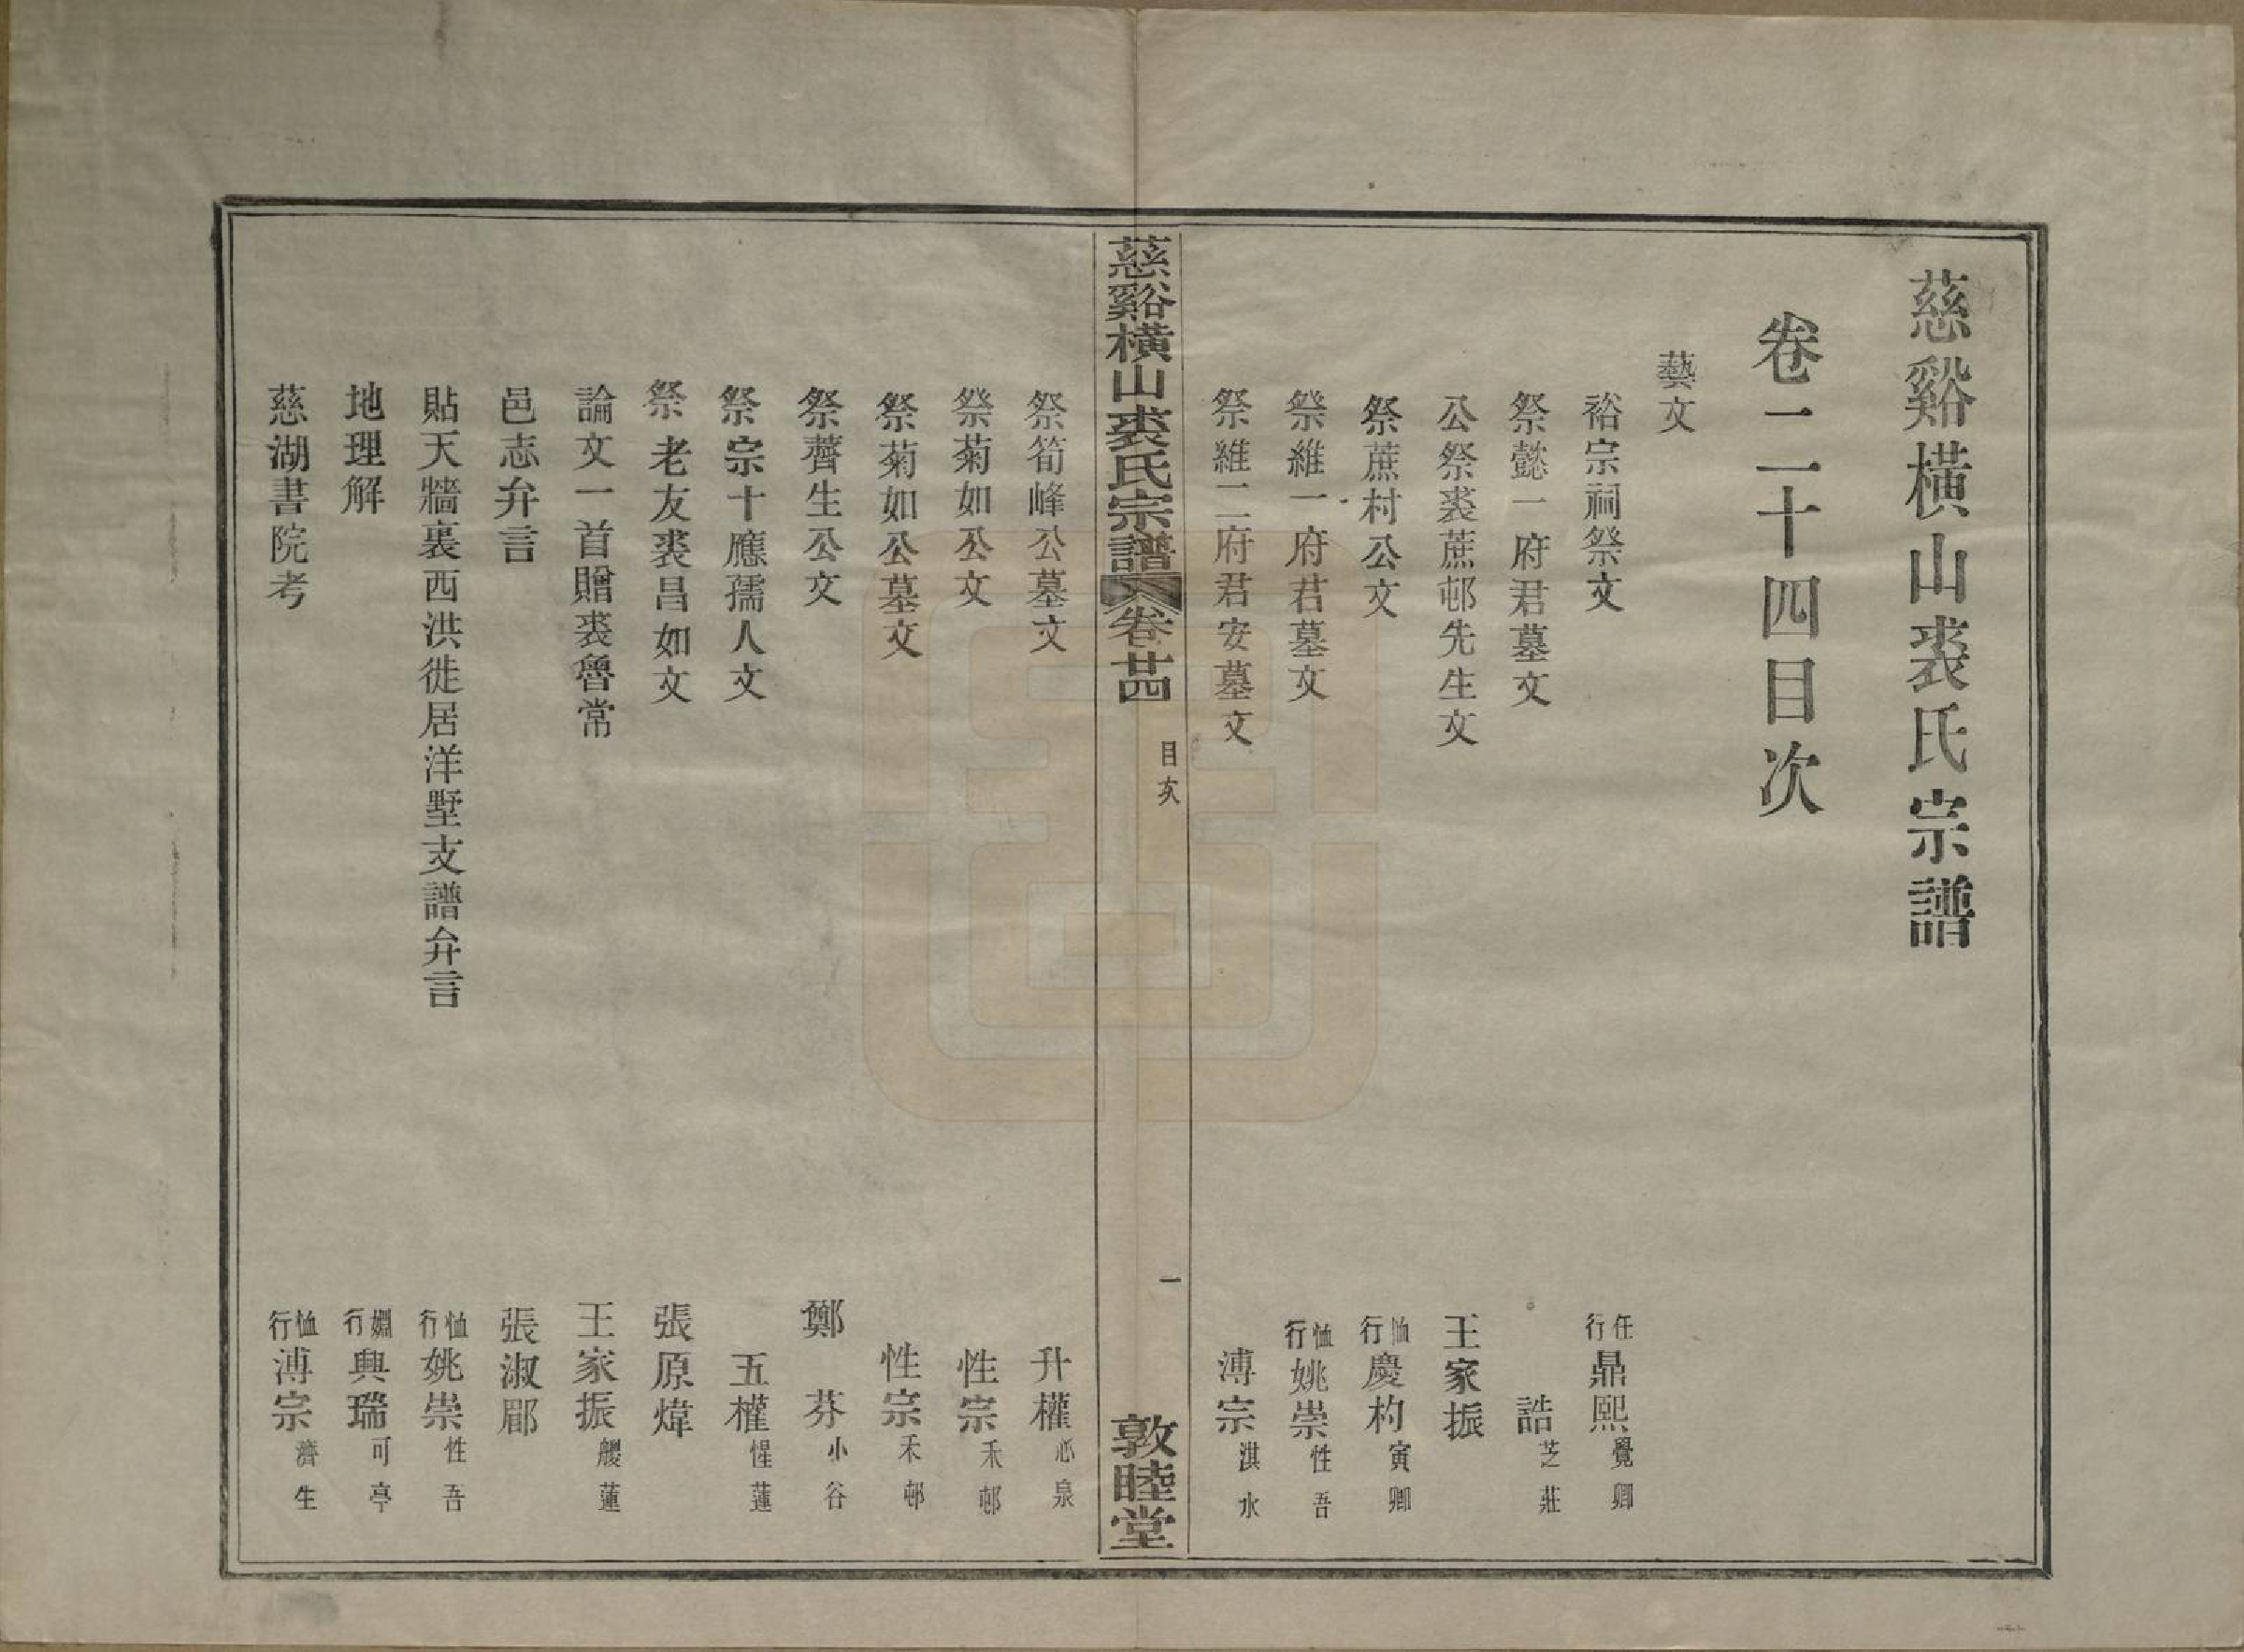 慈谿橫山裘氏宗譜
卷二十四目次
藝文
裕宗祠祭文 任行鼎熙覺卿
祭懿一府君墓文 誥芝莊
公祭裘蔗邨先生文 王家振
祭蔗村公文 恤行慶杓寅卿
祭維一府君墓文 恤行姚崇性吾
祭維二府君安墓文 溥宗淇水
慈谿橫山裘氏宗譜 卷廿四 目次 一 敦睦堂
祭筍峰公墓文 升權沁泉
祭菊如公文 性宗禾邨
祭菊如公墓文 性宗禾邨
祭薺生公文 鄭芬小谷
祭宗十應孺人文 五權惺蓮
祭老友裘昌如文 張原煒
論文一首贈裘魯常 王家振艭蓮
邑志弁言 張淑郿
貼天牆裏西洪徙居洋墅支譜弁言 恤行姚崇性吾
地理解 婣行興瑞可亭
慈湖書院考 恤行溥宗濟生